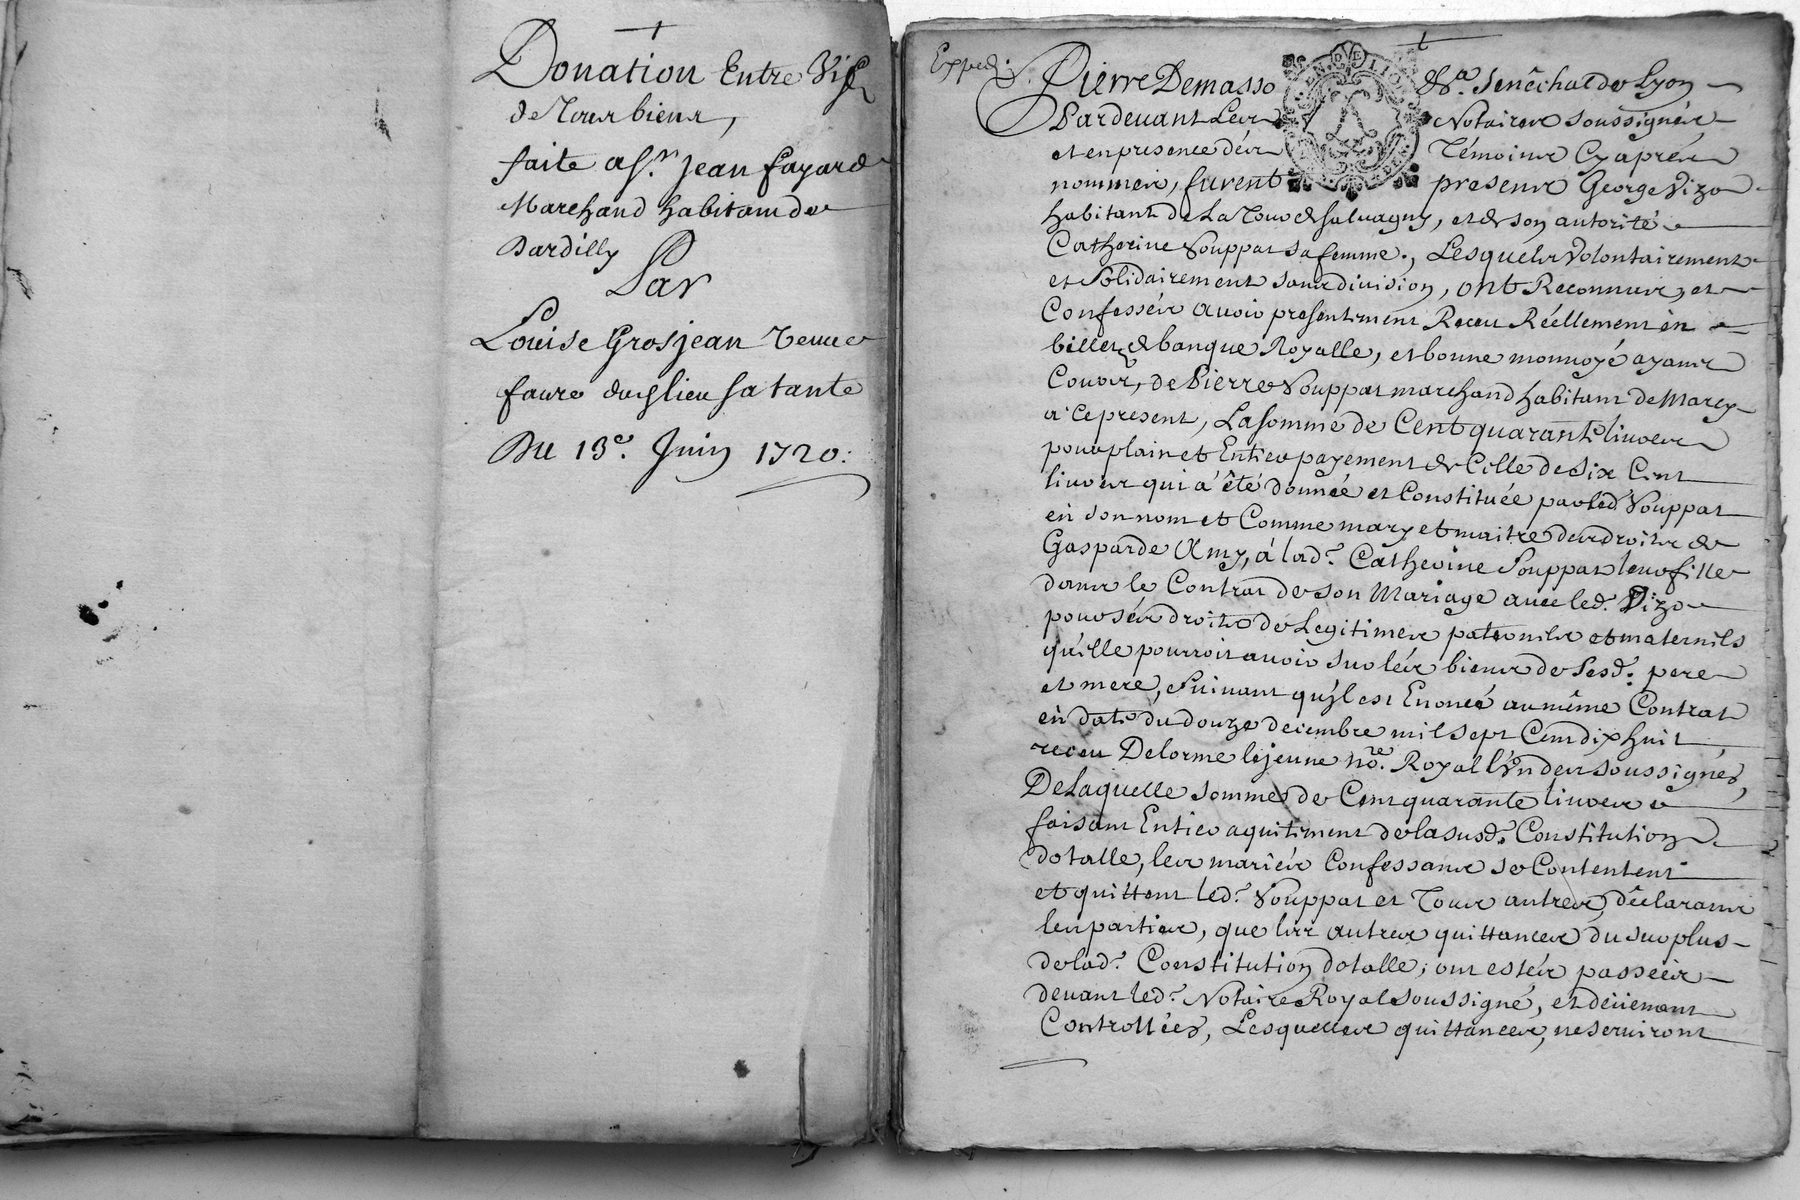 Donation Entre Vifs
de Tous biens,
faite a Sr. Jean fayard
Marchand habitant de
Dardilly
Par
Louise Grosjean veuve
faure dud lieu sa tante
Du 13e. Juin 1720:
Exped:
Pierre Demasso &a. Senêchal de Lyon
Pardevant Les Notaires soussignés
et en presence dés Témoins Cy aprés
nommés, furent presens George Vizo
habitant de La Tour de Salvagny, et de son autorité
Catherine Vouppat sa femme., Lesquels Volontairement
et Solidairement sans division, ont Reconnus, et
Confessés avoir presentement Receu Réellement en
billets de banque Royalle, et bonne monnoyé ayant
Cours, de Pierre Vouppat marchand habitant de Marcy
a Ce present, La somme de Cent quarante livres
pour plain et Entier payement de Celle de Six Cent
livres qui a été donnée et Constituée par led. Vouppat
en son nom et Comme mary et maitre des droits de
Gasparde Amy, á lad.e Catherine Vouppat leur fille
dans le Contrat de son Mariage avec led. Vizo
pour sés droits de Legitimes paternels et maternels
qu'elle pourroit avoir sur lés biens de Sesd. pere
et mere, Suivant qu'il est Enoncé au même Contrat
en date du douze decembre mil sept Cent dix huit
receu Delorme le jeune nore. Royal l'Vn des soussignés,
De Laquelle somme de Cent quarante livres
faisant Entier aquitiment de la susd. Constitution
dotalle, les mariés Confessans se Contentent
et quittent led. Vouppat et Tous autres, déclarans
les parties, que les autres quittances du surplus
de lad. Constitution dotalle, ont estés passées
devant led. Notaire Royal soussigné, et déüement
Controllées, Lesquelles quittances, ne serviront